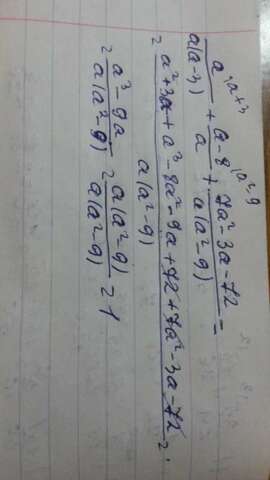 a^{\a+3}/a(a-3) + a-8^{\a²-9}/a + 7a²-3a-72/a(a²-9) =
= a²+3a+a³-8a²-9a+72+7a²-3a-72/a(a²-9) =
= a³-9a/a(a²-9) = a(a²-9)/a(a²-9) = 1